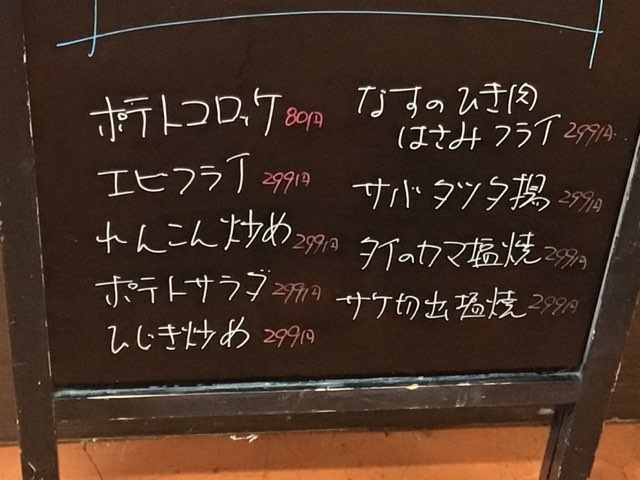 ポテトコロッケ 80円
エビフライ 299円
れんこん炒め 299円
ポテトサラダ 299円
ひじき炒め 299円
なすのひき肉
はさみフライ 299円
サバタツタ揚 299円
タイのカマ塩焼 299円
サケ切出塩焼 299円